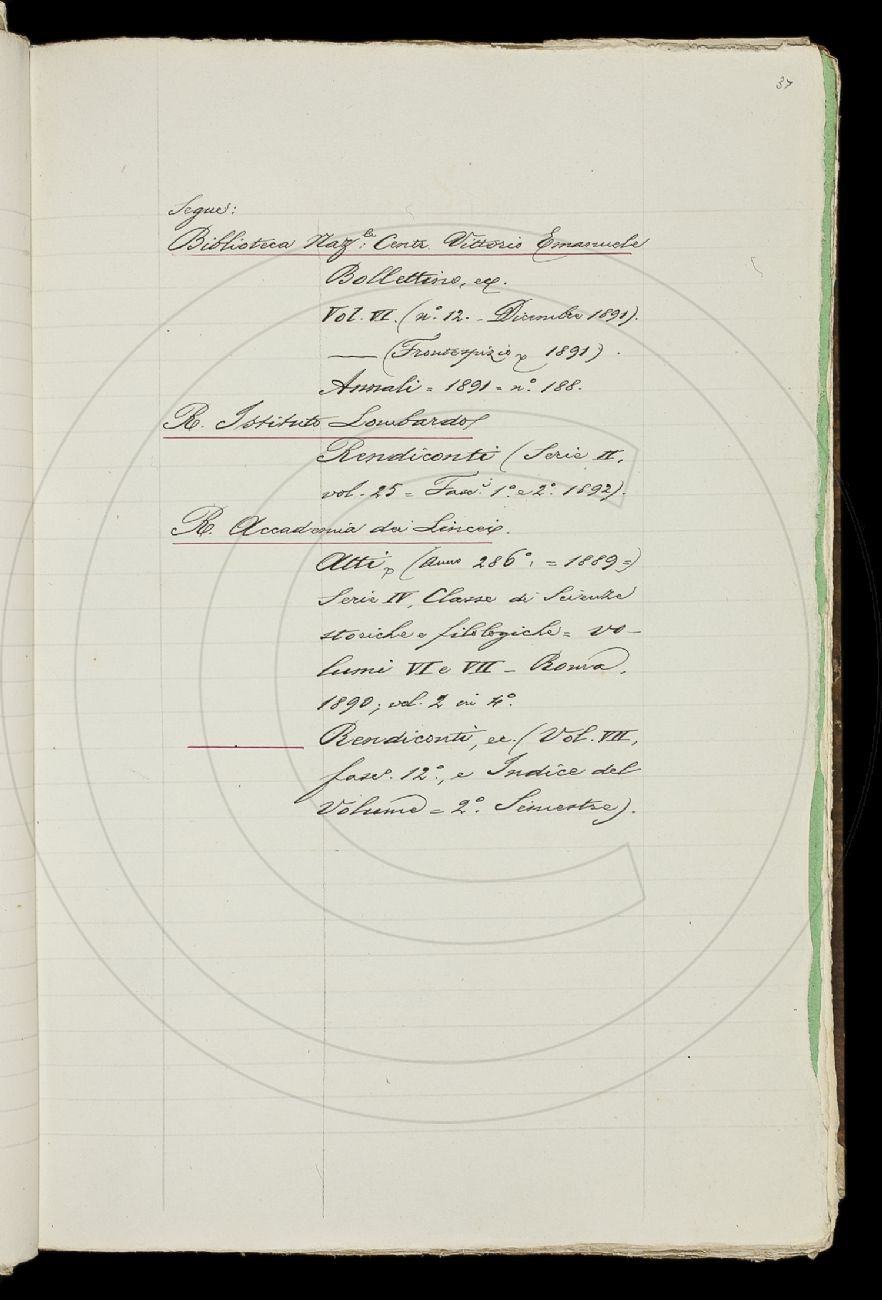 37
Segue:
Biblioteca Naz.le: Centr. Vittorio Emanuele
Bollettino, ec.
Vol. VI. (n.° 12. - Dicembre 1891).
—— (Frontespizio pe 1891).
Annali = 1891 = n.° 188.
R. Istituto Lombardo
Rendiconti (Serie II,
vol. 25 = Fasc.i 1.° e 2.° 1892).
R. Accademia dei Lincei.
Atti, (Anno 286°: = 1889=)
Serie IV, Classe di Scienze
storiche e filologiche = vo-
lumi VI e VII - Roma,
1890; vol. 2 in 4.°
—— Rendiconti, ec. (Vol. VII,
fasc. 12.°, e Indice del
Volume = 2.° Semestre).